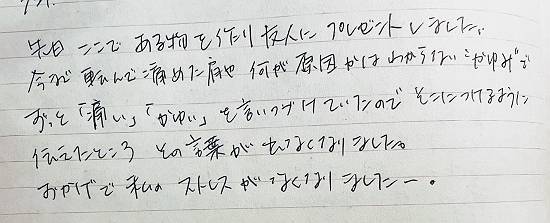 先日 ここで ある物を作り友人に プレゼントしました。
今まで 転んで痛めた肩や 何が原因かは わからない“かゆみ”で
ずっと「痛い」「かゆい」を言いつづけていたので そこにつけるように
伝えたところ その言葉が 出なくなりました。
おかげで 私の ストレスが なくなりましたー。